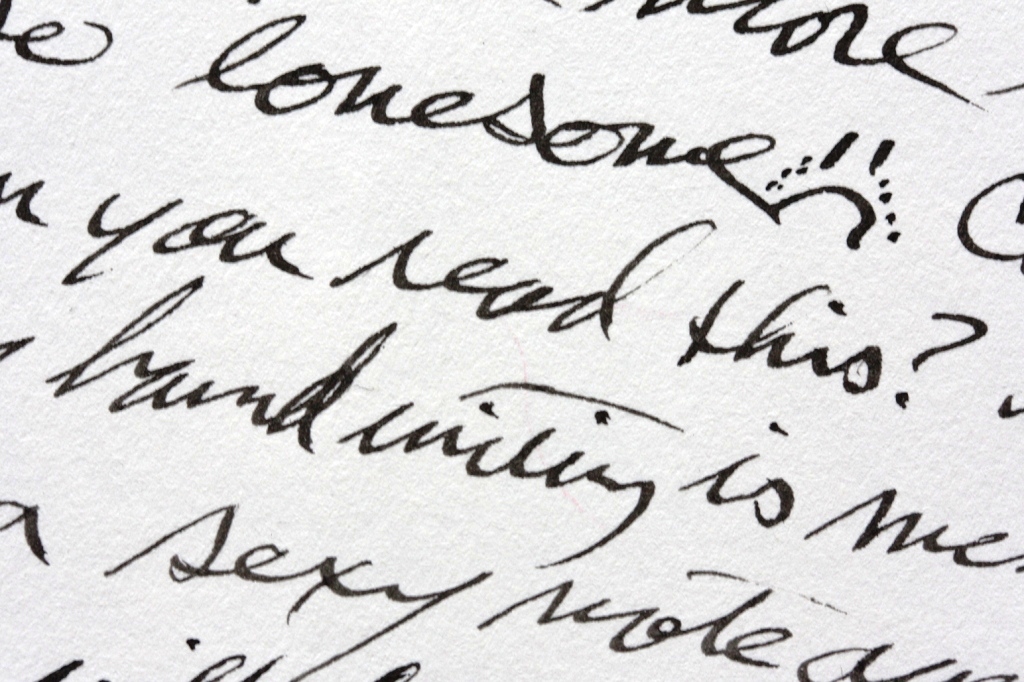 more
lonesome
you read this?
handwriting is
a sexy note